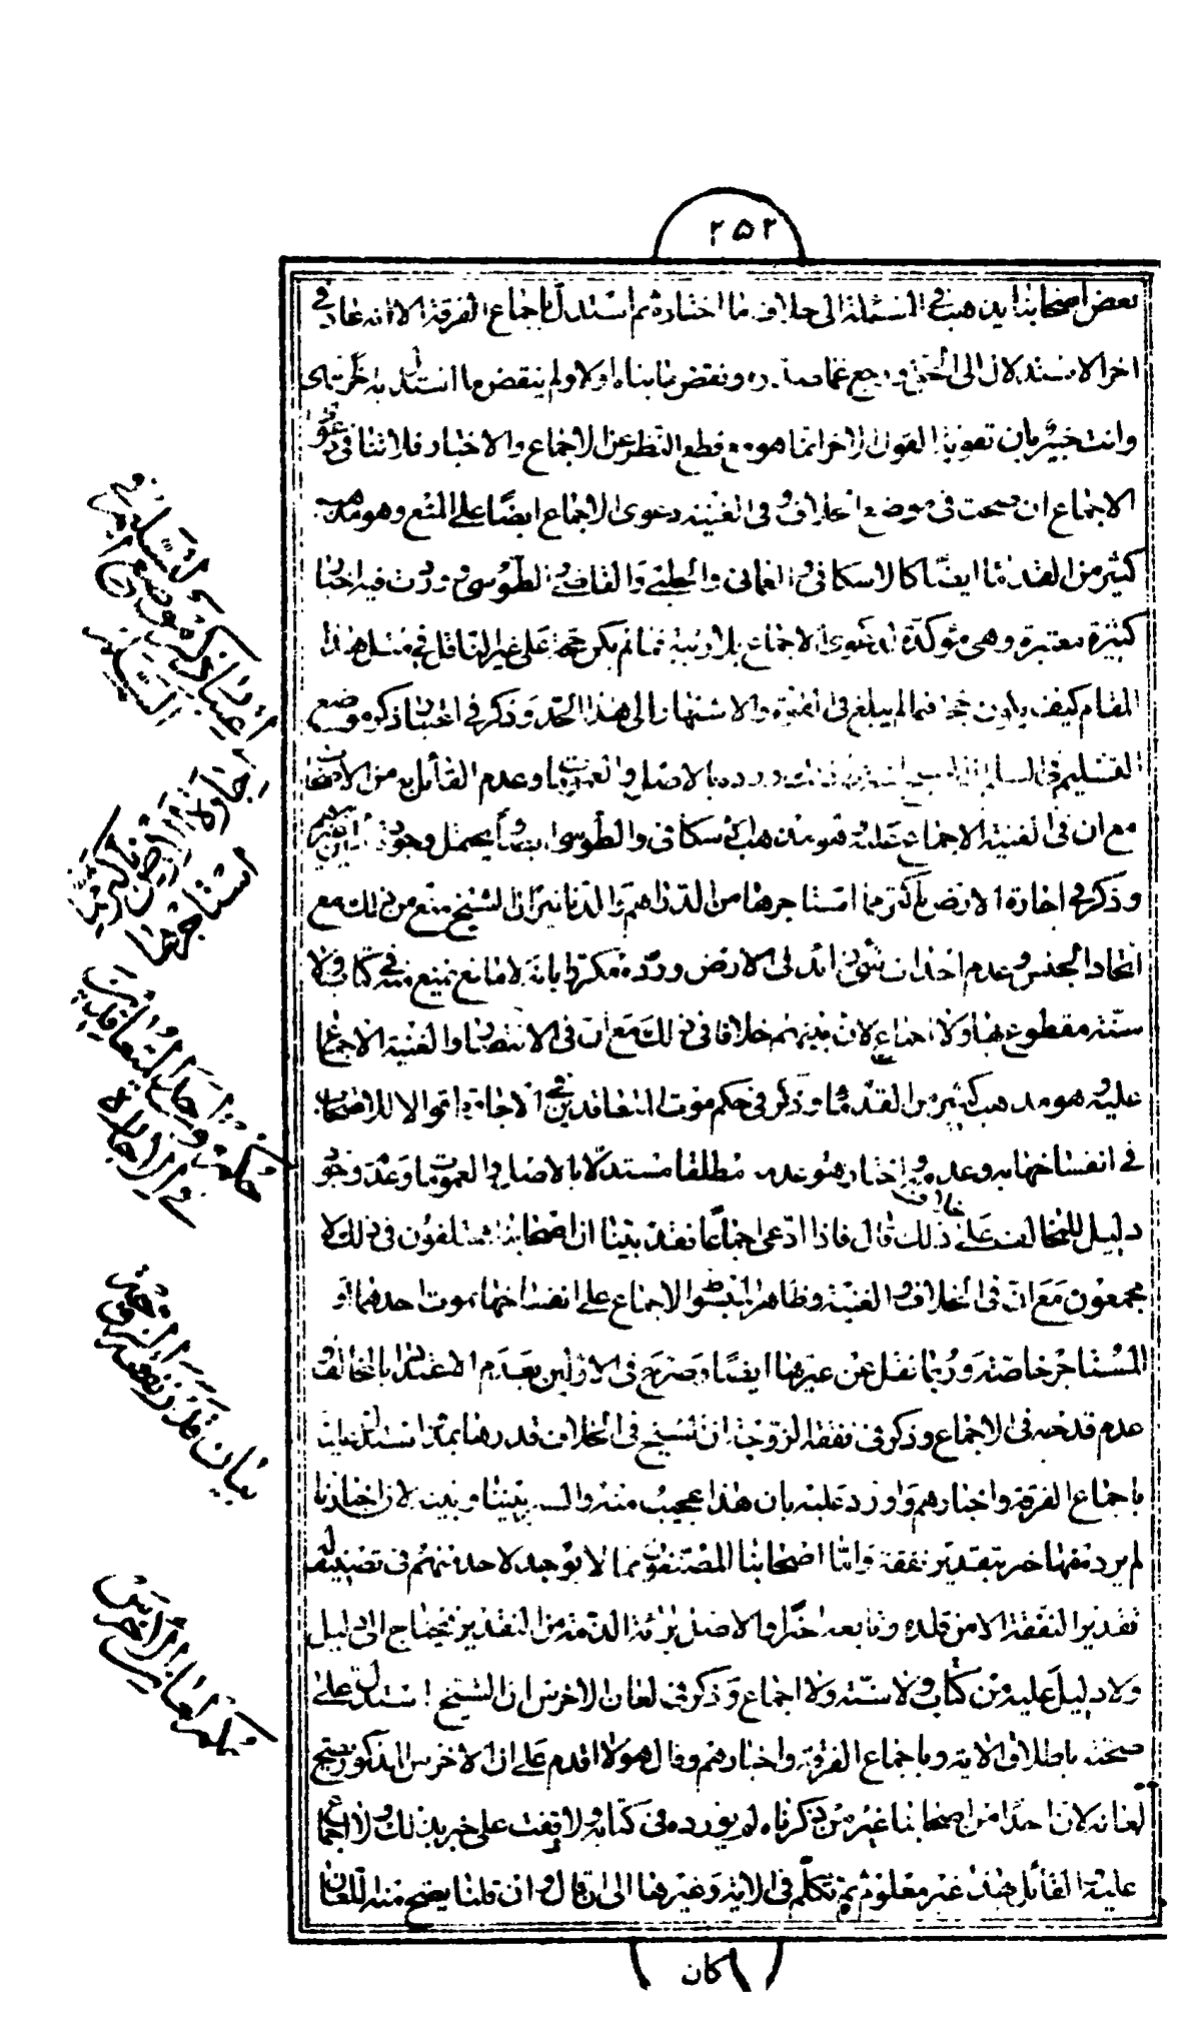 ٢٥٢
بعض اصحابنا يذهب فى المسئلة الى خلاف ما اختاره ثم استدل باجماع الفرقة الا انه عاد فى
اخر الاستدلال الى الحق ورجع عما ونقض ما بناه اولا ولم ينقض ما استدل به
وانت خبير بان تقوية القول الاخر انما هو مع قطع النظر عن الاجماع والاخبار فلا تنافى دعوى
الاجماع ان صحت فى موضع الخلاف وفى الغنية دعوى الاجماع ايضا على المنع وهو مذهب
كثير من القدماء ايضا كالاسكافى والعمانى والحلبى والقاضى والطوسى وردت فيه اخبار
كثيرة معتبرة وهى مؤكدة لدعوى الاجماع بلا ريبة فما لم يكن حجة على غير الناقل فى مثل هذا
المقام كيف يكون حجة فيما لم يبلغ فى القوة والاشتهار الى هذا الحد وذكر فى اعتبار ذكر موضع
التسليم فى السلم ورده بالاصل والعمومات وعدم القائل به من الاصحاب
مع ان فى الغنية الاجماع عليه وهو مذهب الاسكافى والطوسى ايضا يحتمل وجود
وذكر فى اجارة الارض باكثر مما استاجرها من الدراهم والدنانير ان الشيخ منع من ذلك مع
اتحاد الجنس وعدم احداث شىء زائد فى الارض ورده مكررا بانه لا مانع يمنع منه فى كتاب ولا
سنة مقطوع بها ولا اجماع لان بينهم خلافا فى ذلك مع ان فى الانتصار والغنية الاجماع
عليه وهو مذهب كثير من القدماء وذكر فى حكم موت المتعاقدين فى الاجارة اقوالا للاصحاب
فى انفساخها به وعدمه واختار هو عدمه مطلقا مستدلا بالاصل والعمومات وعدم وجود
دليل للمخالف على خلاف ذلك قال فاذا ادعى اجماعا فقد بينا ان اصحابنا مختلفون فى ذلك لا
مجمعون مع ان فى الخلاف والغنية وظاهر المبسوط الاجماع على انفساخها بموت احدهما او
المستاجر خاصة وربما نقل عن غيرها ايضا وصرح فى الاولين بعدم الاعتداد بالمخالف
عدم قدحه فى الاجماع وذكر فى نفقة الزوجة ان الشيخ فى الخلاف قدرها بمد استدل عليه
باجماع الفرقة واخبارهم واورد عليه بان هذا عجيب منه والسبر بيننا وبينه لان اخبارنا
لم يرد فيها خبر بتقدير نفقة واما اصحابنا المصنفون فما لا يوجد لاحد منهم فى تصنيف له
تقدير النفقة الا من قلده وتابعه اخيرا والاصل برائة الذمة من التقدير فيحتاج الى دليل
ولا دليل عليه من كتاب ولا سنة ولا اجماع وذكر فى لعان الاخرس ان الشيخ استدل على
صحته باطلاق الاية وباجماع الفرقة واخبارهم وقال هو لا اقدم على ان الاخرس المذكور يصح
لعانه لان احدا من اصحابنا غير من ذكرناه لم يورده فى كتابه ولا وقفت على خبر بذلك ولا اجماع
عليه والقائل بهذا غير معلوم ثم تكلم فى الاية وغيرها الى ان قال وان قلنا يصح منه اللعان
كان
اعتبار ذكر موضع التسليم فى السلم
اجارة الارض باكثر مما استاجرها
حكم موت احد المتعاقدين فى الاجارة
بيان قدر نفقة الزوجة
حكم لعان الاخرس